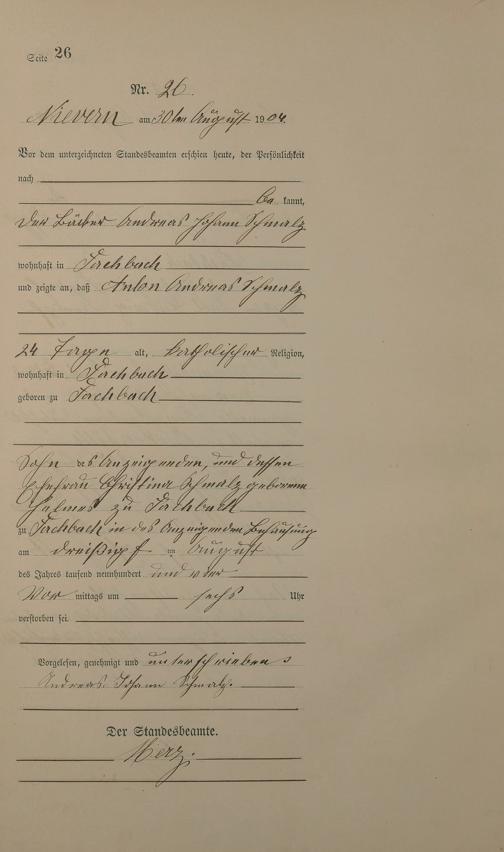 Seite 26
Nr. 26.
Nievern am 30ten August 1904.
Vor dem unterzeichneten Standesbeamten erschien heute, der Persönlichkeit
nach
be kannt,
der Bäcker Andreas Johann Schmalz
wohnhaft in Fachbach
und zeigte an, daß Anton Andreas Schmalz
24 Tage alt, katholischer Religion,
wohnhaft in Fachbach
geboren zu Fachbach
Sohn des Anzeigenden, und dessen
Ehefrau Christina Schmalz geborene
zu Fachbach
zu Fachbach in des Anzeigenden Behausung
am dreißigsten August
des Jahres tausend neunhundert und vier
Vor mittags um sechs Uhr
verstorben sei.
Vorgelesen, genehmigt und unterschrieben
Andreas Johann Schmalz.
Der Standesbeamte.
Merz.